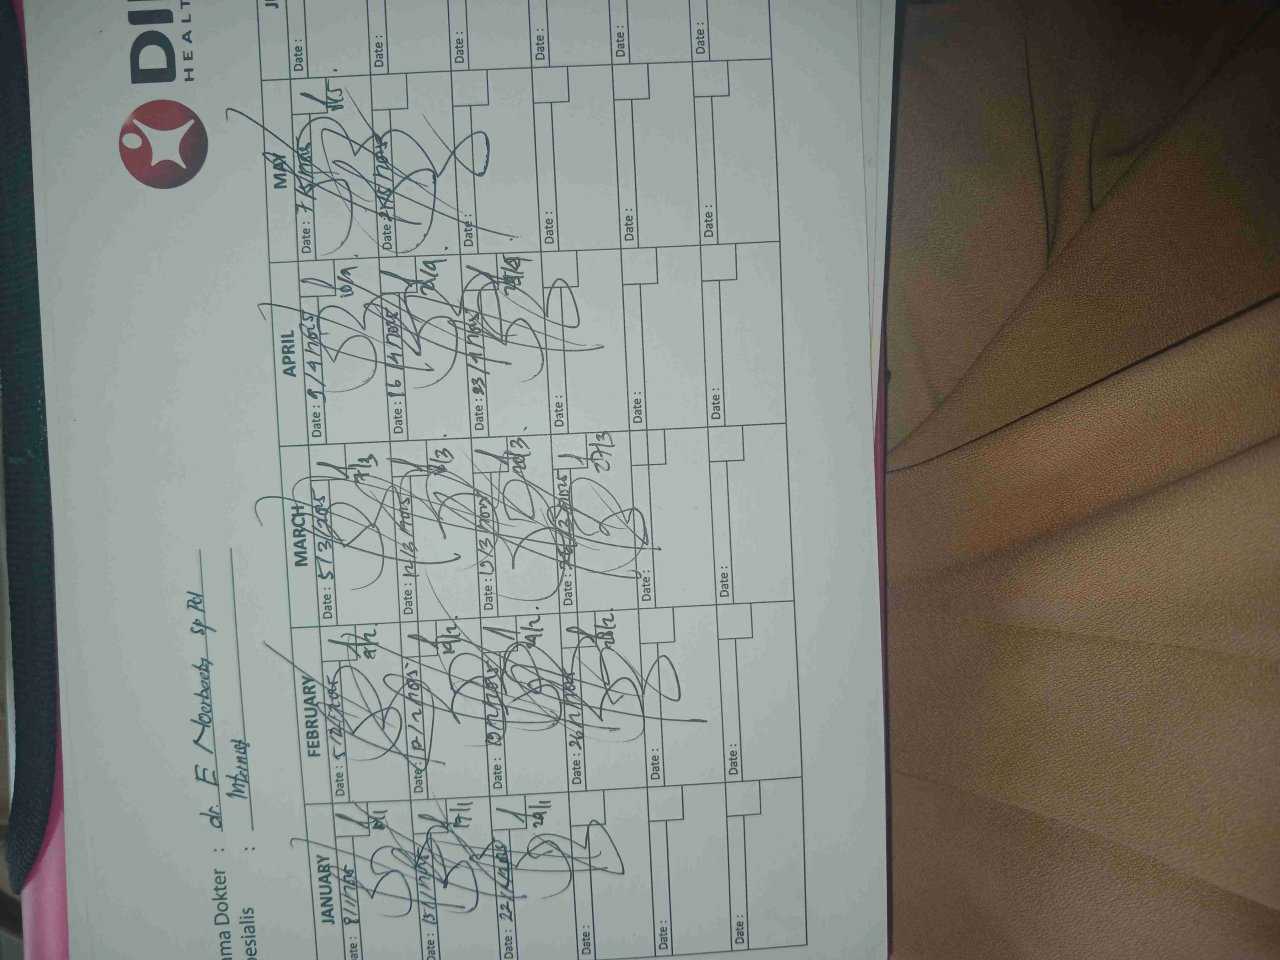 DI
HEALT
ma Dokter : dr. E Noerbaety SpPd
pesialis : Internist
JANUARY FEBRUARY MARCH APRIL MAY J
Date : 8/1/2025 Date : 5/2/2025 Date : 5/3/2025 Date : 9/4/2025 Date : 7/5/2025 Date :
9/2. 7/3 10/4. 8/5.
Date : 15/1/2025 Date : 12/2/2025 Date : 12/3/2025 Date : 16/4/2025 Date : Date :
17/1 14/2.
Date : 22/1/2025 Date : 19/2/2025 Date : 19/3/2025 Date : 23/4/2025 Date : Date :
24/1 20/3.
Date : Date : 26/2/2025 Date : 26/3/2025 Date : Date : Date :
28/2. 27/3
Date : Date : Date : Date : Date : Date :
Date : Date : Date : Date : Date : Date :